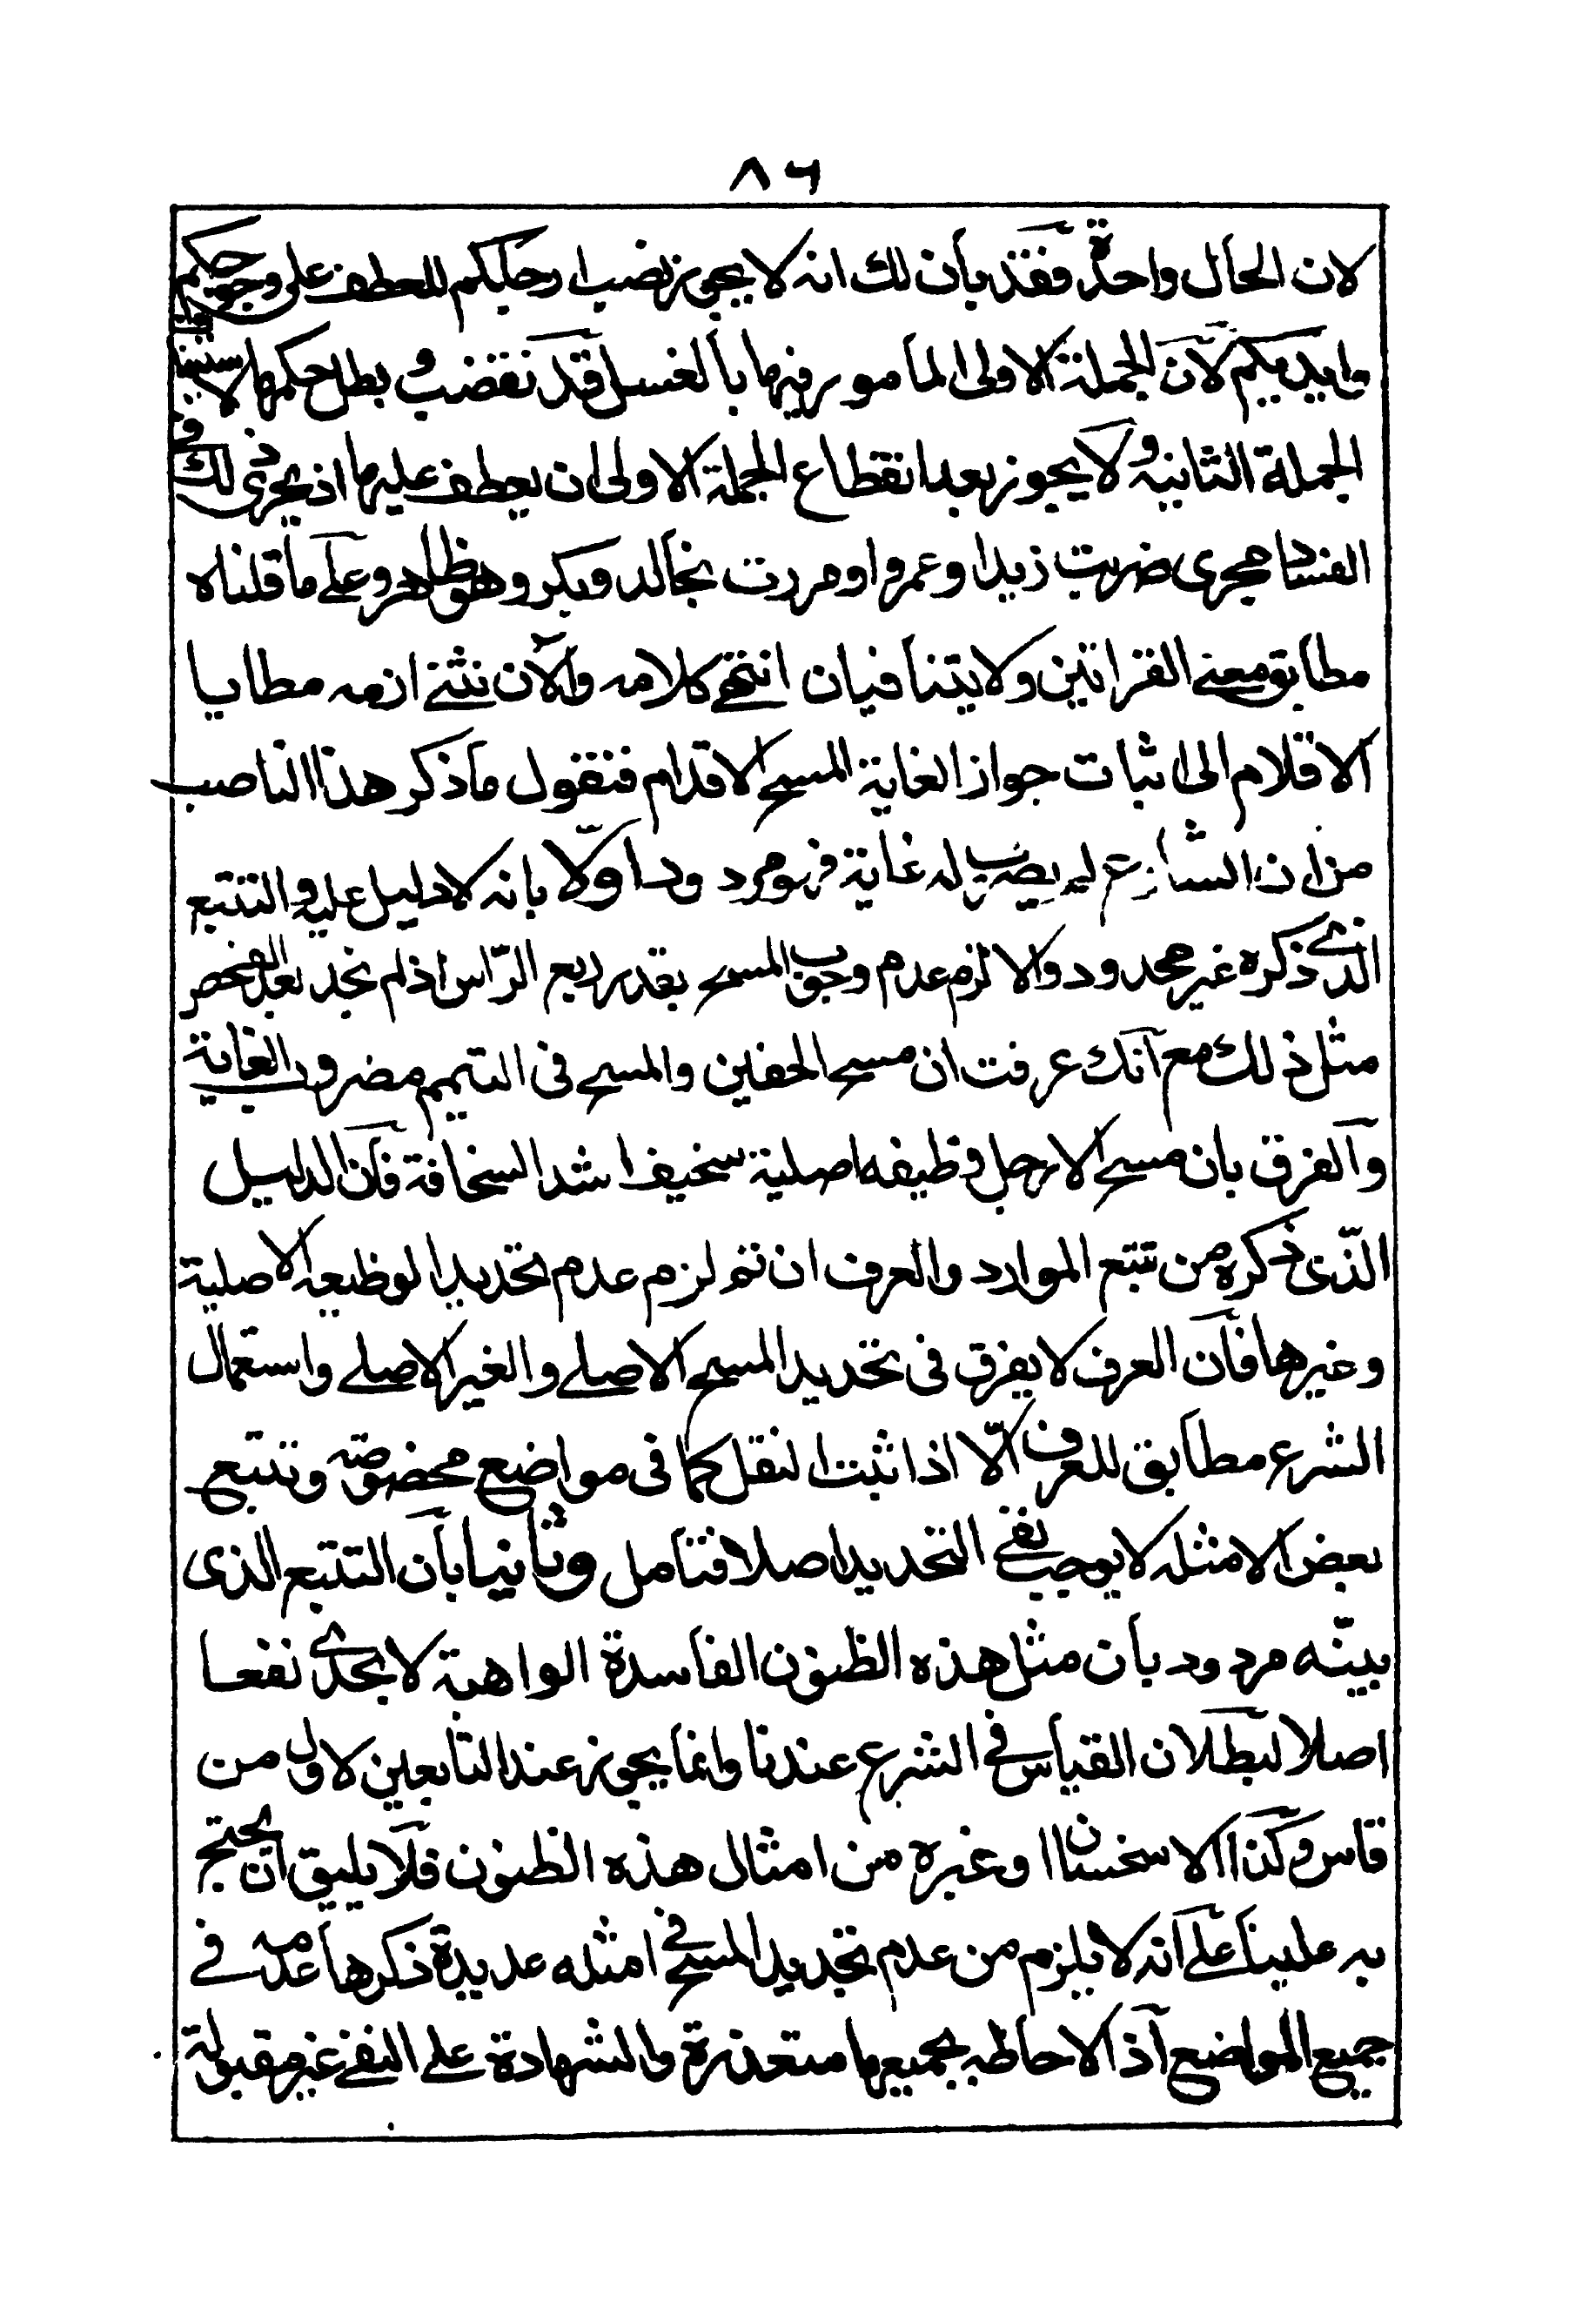 ٨٦
لان الحال واحدة فقد بان لك انه لا يجوز نصب ارجلكم للعطف على وجوهكم
وايديكم لان الجملة الاولى المأمور فيها بالغسل قد نقضت وبطل حكمها لاستيناف
الجملة الثانية ولا يجوز بعد انقطاع الجملة الاولى ان يعطف عليها اذ يجرى ذلك في
الفساد مجرى ضربت زيدا وعمروا ومررت بخالد وبكر وهو ظاهر وعلى ما قلناه
مطابق معنى القرائتين ولا يتنافيان انتهى كلامه والآن نثنى ازمه مطايا
الاقلام الى اثبات جواز الغاية المسح الاقدام فنقول ما ذكر هذا الناصب
من ان الشارع لم يضرب له غاية فهو مردود اولا بانه لا دليل عليه والتتبع
الذى ذكره غير محدود والا لزم عدم وجوب المسح بقدر ربع الراس اذ لم نجد بعد الفحص
مثل ذلك مع انك عرفت ان مسح الخفين والمسح فى التيمم مضروب الغاية
والفرق بان مسح الارجل وظيفه اصلية سخيف اشد السخافة فان الدليل
الّذى ذكره من تتبع الموارد والعرف ان تم لزم عدم تحديد الوظيفه الاصلية
وغيرها فان العرف لا يفرق فى تحديد المسح الاصلى والغير الاصلى واستعمال
الشرع مطابق للعرف الّا اذا ثبت النقل كما فى مواضع مخصوصة وتتبع
بعض الامثله لا يوجب نفى التحديد اصلا فتامل وثانيا بان التتبع الذى
بيّنه مردود بان مثل هذه الظنون الفاسدة الواهية لا يجدى نفعا
اصلا لبطلان القياس فى الشرع عندنا وانما يجوز عند التابعين لاول من
قاس وكذا الاستحسان او غيره من امثال هذه الظنون فلا يليق ان يحتج
به علينا على انه لا يلزم من عدم تحديد المسح فى امثله عديدة ذكرها عدمه فى
جميع المواضع اذ الاحاطه بجميعها متعذرة والشهادة على النفى غير مقبولة